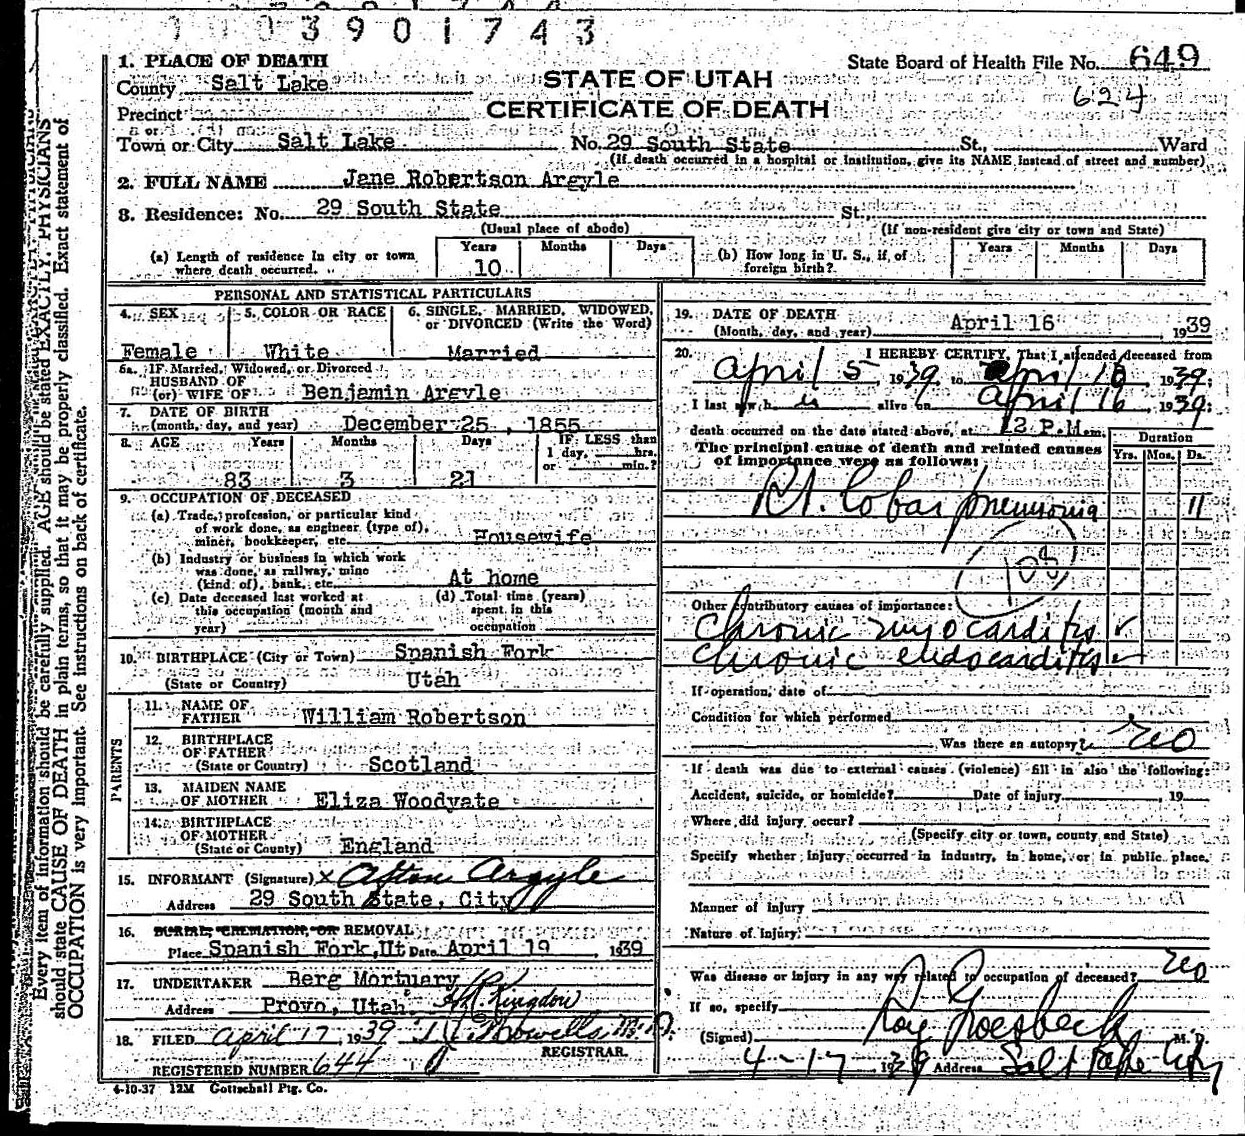 003901743
1. PLACE OF DEATH
State Board of Health File No. 649
County Salt Lake
STATE OF UTAH
624
CERTIFICATE OF DEATH
Precinct
Town or City Salt Lake No. 29 South State St., Ward
(If death occurred in a hospital or institution, give its NAME instead of street and number)
2. FULL NAME Jane Robertson Argyle
3. Residence: No. 29 South State St.,
(Usual place of abode) (If non-resident give city or town and State)
(a) Length of residence in city or town where death occurred. Years 10 Months Days
(b) How long in U. S., if of foreign birth? Years Months Days
PERSONAL AND STATISTICAL PARTICULARS
4. SEX Female
5. COLOR OR RACE White
6. SINGLE, MARRIED, WIDOWED, or DIVORCED (Write the Word) Married
6a. IF Married, Widowed, or Divorced
HUSBAND OF
(or) WIFE OF Benjamin Argyle
7. DATE OF BIRTH
(month, day, and year) December 25, 1855
8. AGE Years Months Days IF LESS than
1 day, hrs.
or min.?
83 3 21
9. OCCUPATION OF DECEASED
(a) Trade, profession, or particular kind
of work done, as engineer (type of),
miner, bookkeeper, etc. Housewife
(b) Industry or business in which work
was done, as railway, mine
(kind of), bank, etc. At home
(c) Date deceased last worked at
this occupation (month and
year)
(d) Total time (years)
spent in this
occupation
10. BIRTHPLACE (City or Town) Spanish Fork
(State or Country) Utah
PARENTS
11. NAME OF
FATHER William Robertson
12. BIRTHPLACE
OF FATHER
(State or Country) Scotland
13. MAIDEN NAME
OF MOTHER Eliza Woodyate
14. BIRTHPLACE
OF MOTHER
(State or County) England
15. INFORMANT (Signature) x Afton Argyle
Address 29 South State, City
16. BURIAL, CREMATION, OR REMOVAL
Place Spanish Fork, Ut Date April 19 1939
17. UNDERTAKER Berg Mortuary
Address Provo, Utah
18. FILED April 17 1939 M.D.
REGISTRAR.
REGISTERED NUMBER 644
4-10-37 12M Gottschall Ptg. Co.
19. DATE OF DEATH
(Month, day, and year) April 16 1939
20. I HEREBY CERTIFY, That I attended deceased from
April 5 1939, to April 16 1939;
I last saw h er alive on April 16 1939;
death occurred on the date stated above, at 12 P.M. m.
The principal cause of death and related causes
of importance were as follows:
Duration
Yrs. Mos. Ds.
Rt. lobar pneumonia 11
108
Other contributory causes of importance:
Chronic myocarditis ✓
Chronic endocarditis ✓
If operation, date of
Condition for which performed
Was there an autopsy? no
If death was due to external causes (violence) fill in also the following:
Accident, suicide, or homicide? Date of injury , 19
Where did injury occur?
(Specify city or town, county and State)
Specify whether injury occurred in industry, in home, or in public place.
Manner of injury
Nature of injury
Was disease or injury in any way related to occupation of deceased? no
If so, specify
(Signed) Roy Groesbeck M. D.
4-17, 1939 Address Salt Lake City
Every item of information should be carefully supplied. AGE should be stated EXACTLY. PHYSICIANS
should state CAUSE OF DEATH in plain terms, so that it may be properly classified. Exact statement of
OCCUPATION is very important. See instructions on back of certificate.